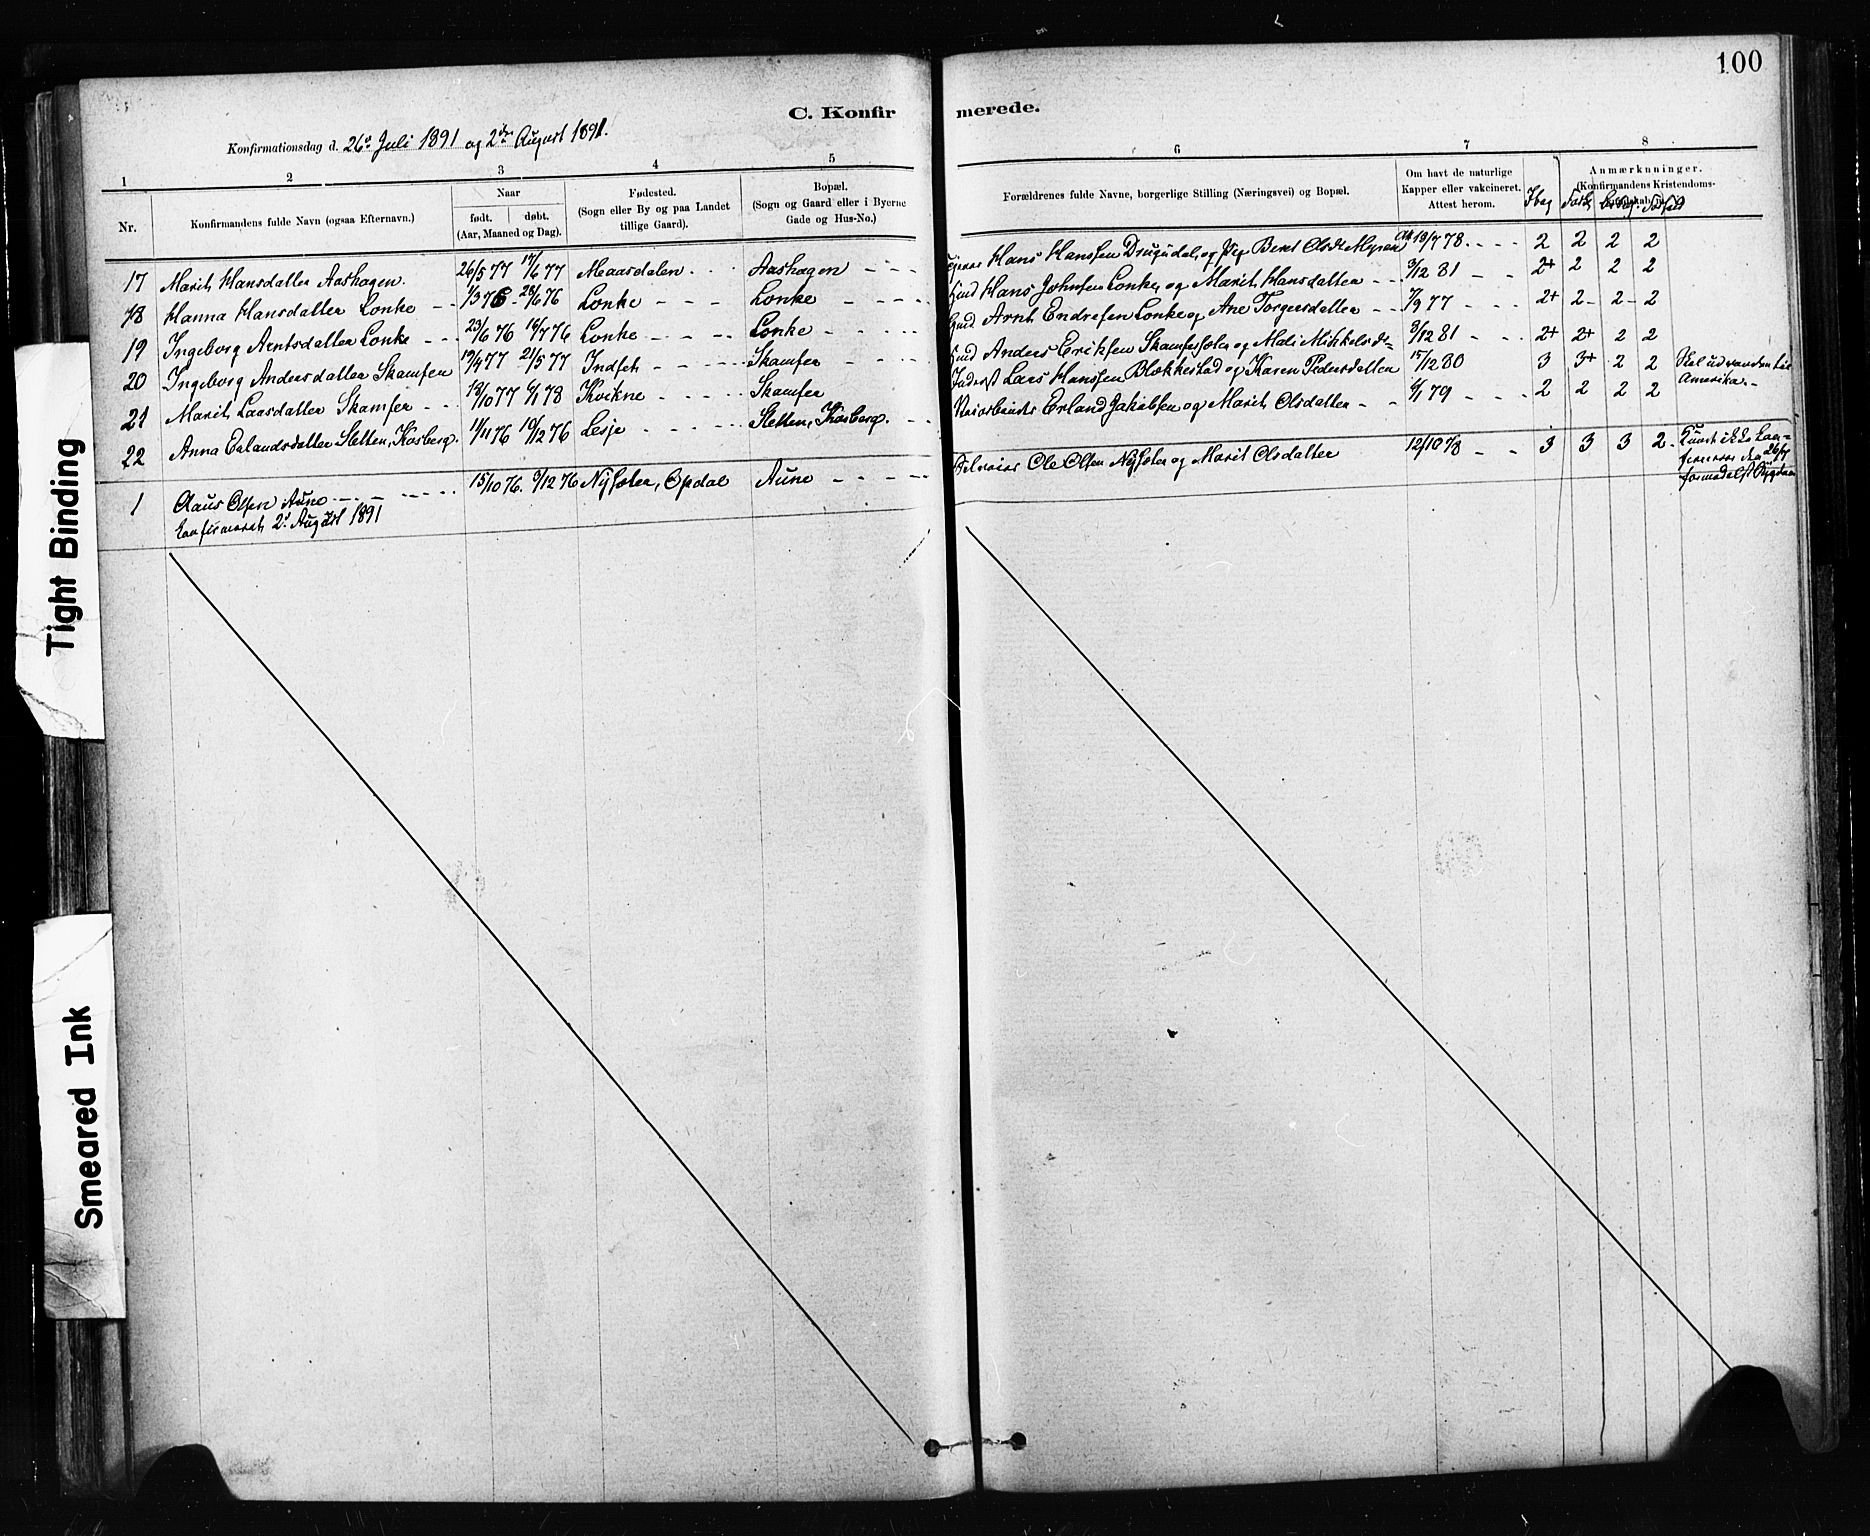 100
C. Konfirmerede.
Konfirmationsdag d. 26de Juli 1891 og 2den August 1891.
1 2 3 4 5 6 7 8
Nr.
Konfirmandens fulde Navn (ogsaa Efternavn.)
Naar
født. døbt.
(Aar, Maaned og Dag).
Fødested.
(Sogn eller By og paa Landet
tillige Gaard).
Bopæl.
(Sogn og Gaard eller i Byerne
Gade og Hus-No.)
Forældrenes fulde Navne, borgerlige Stilling (Næringsvei) og Bopæl.
Om havt de naturlige
Kapper eller vakcineret.
Attest herom.
Anmærkninger.
(Konfirmandens Kristendoms-
17 Marit Hansdatter Aashagen. 26/5 77 17/6 77 Maardalen Aashagen Hans Hansen Drugudal, og Pige Beret Olsdt Myren Att 19/7 78. 2 2 2 2
18 Hanna Hansdatter Lonke 1/3 76 28/6 76 Lonke Lonke Hans Johnsen Lonke og Marit Hansdatter 3/12 81 2+ 2 2 2
19 Ingeborg Arntsdatter Lonke 23/6 76 16/7 76 Lonke Lonke Arnt Endresen Lonke og Ane Torgersdatter 7/9 77 2+ 2 2 2
20 Ingeborg Andersdatter Skamfer 19/4 77 21/5 77 Indset Skamfer Anders Eriksen Skamfersæter og Mali Mikkelsdt 3/12 81 2+ 2+ 2 2
21 Marit Larsdatter Skamfer 18/10 77 6/1 78 Kvikne Skamfer Inderst Lars Hansen Blokkestad og Karen Pedersdatter 15/12 80 3 3+ 2 2 Skal udvandre til
Amerika.
22 Anna Erlandsdatter Sletten, Kosberg. 11/11 76 10/12 76 Lesje Sletten, Kosberg. Erland Jakobsen og Marit Olsdatter 6/1 79 2 2 2 2
1 Claus Olsen Aune 15/10 76. 9/12 76 Nysæter, Opdal Aune Ole Olsen Nysæter og Marit Olsdatter 12/10 78 3 3 3 2 Kunde ikke kon-
firmeres den 26/7
formedelst Sygdom
konfirmeret 2d August 1891
Tight Binding
Smeared Ink